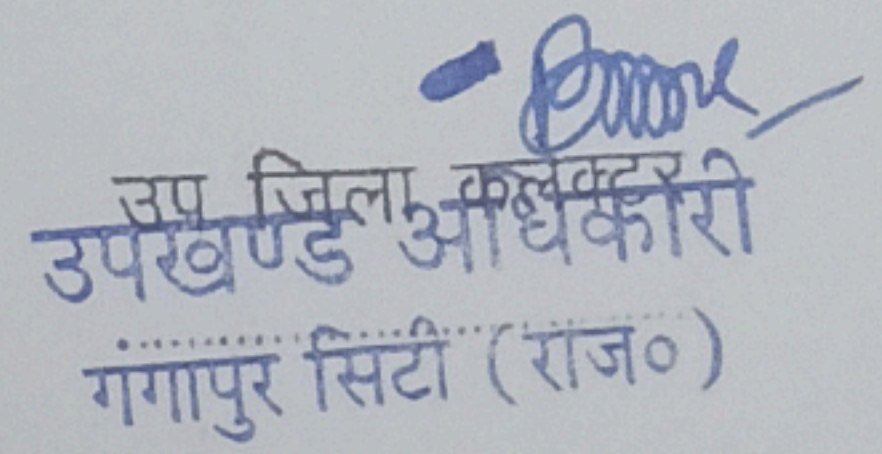 उप जिला कलक्टर
उपखण्ड अधिकारी
गंगापुर सिटी (राज०)